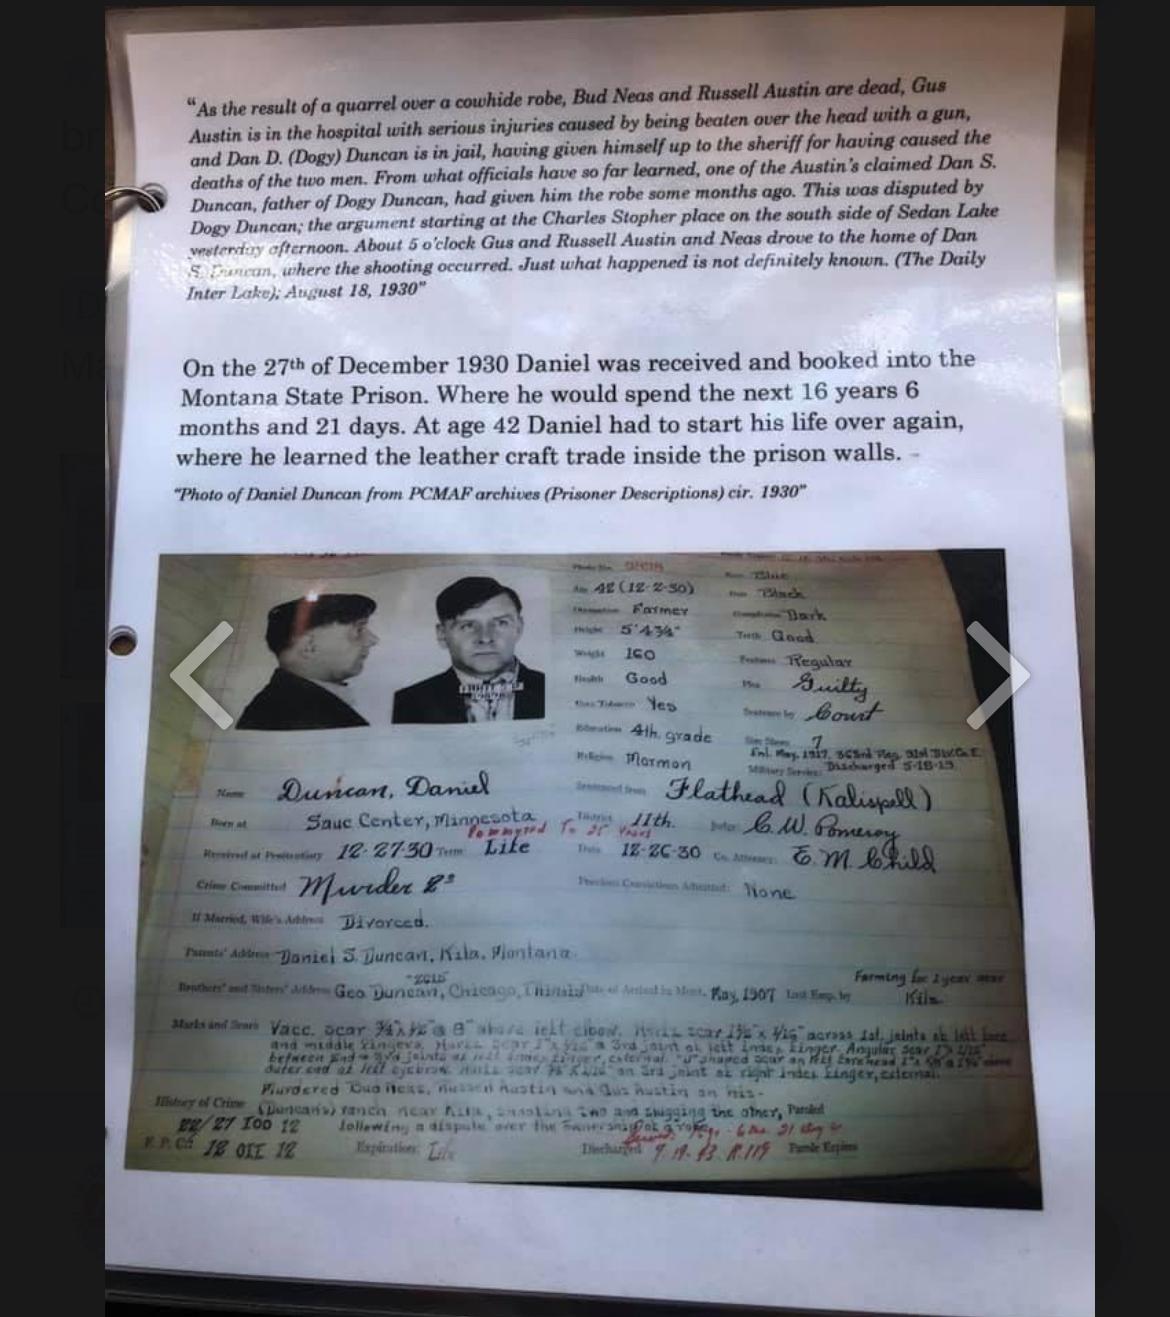 “As the result of a quarrel over a cowhide robe, Bud Neas and Russell Austin are dead, Gus
Austin is in the hospital with serious injuries caused by being beaten over the head with a gun,
and Dan D. (Dogy) Duncan is in jail, having given himself up to the sheriff for having caused the
deaths of the two men. From what officials have so far learned, one of the Austin’s claimed Dan S.
Duncan, father of Dogy Duncan, had given him the robe some months ago. This was disputed by
Dogy Duncan; the argument starting at the Charles Stopher place on the south side of Sedan Lake
yesterday afternoon. About 5 o’clock Gus and Russell Austin and Neas drove to the home of Dan
S. Duncan, where the shooting occurred. Just what happened is not definitely known. (The Daily
Inter Lake); August 18, 1930”
On the 27th of December 1930 Daniel was received and booked into the
Montana State Prison. Where he would spend the next 16 years 6
months and 21 days. At age 42 Daniel had to start his life over again,
where he learned the leather craft trade inside the prison walls. -
“Photo of Daniel Duncan from PCMAF archives (Prisoner Descriptions) cir. 1930”
Blue
Age 42 (12-2-30) Black
Occupation Farmer Complexion Dark
Height 5'4¾" Teeth Good
Weight 160 Features Regular
Health Good Plea Guilty
Uses Tobacco Yes Sentence by Court
Education 4th. grade Size Shoes 7
Enl. May, 1917. 363rd 91st Div. Co. E.
Religion Mormon Military Service: Discharged 5-18-19
Name Duncan, Daniel Sentenced from Flathead (Kalispell)
Born at Sauc Center, Minnesota District 11th. Judge C. W. Pomeroy
Commuted To 25 Years
Received at Penitentiary 12-27-30 Term Life Date 12-26-30 Co. Attorney: E. M. Child
Crime Committed Murder 2° Previous Conviction Admitted: None
If Married, Wife's Address Divorced.
Parents' Address Daniel S. Duncan, Kila, Montana.
Farming for 1 year near
Brothers' and Sisters' Address Geo Duncan, Chicago, Illinois Date of Arrival in Mont. May, 1907 Last Emp. by Kila
Marks and Scars Vacc. scar 8" above left elbow. scar across 1st. joints of left
and middle fingers. scar 3rd joint of left index finger. Angular scar
between 2nd 3rd joints of left index finger, external. "U" shaped scar on left forehead above
outer end of left eyebrow. scar on 3rd joint of right index finger, external.
Murdered Bud Neas, Russell Austin and Gus Austin on his-
History of Crime (Duncan's) ranch near Kila, shooting two and slugging the other, Paroled
22/27 IOO 12 following a dispute over the ownership of a robe.
F. P. C. 12 OII 12 Expiration: Life Discharged Parole Expires